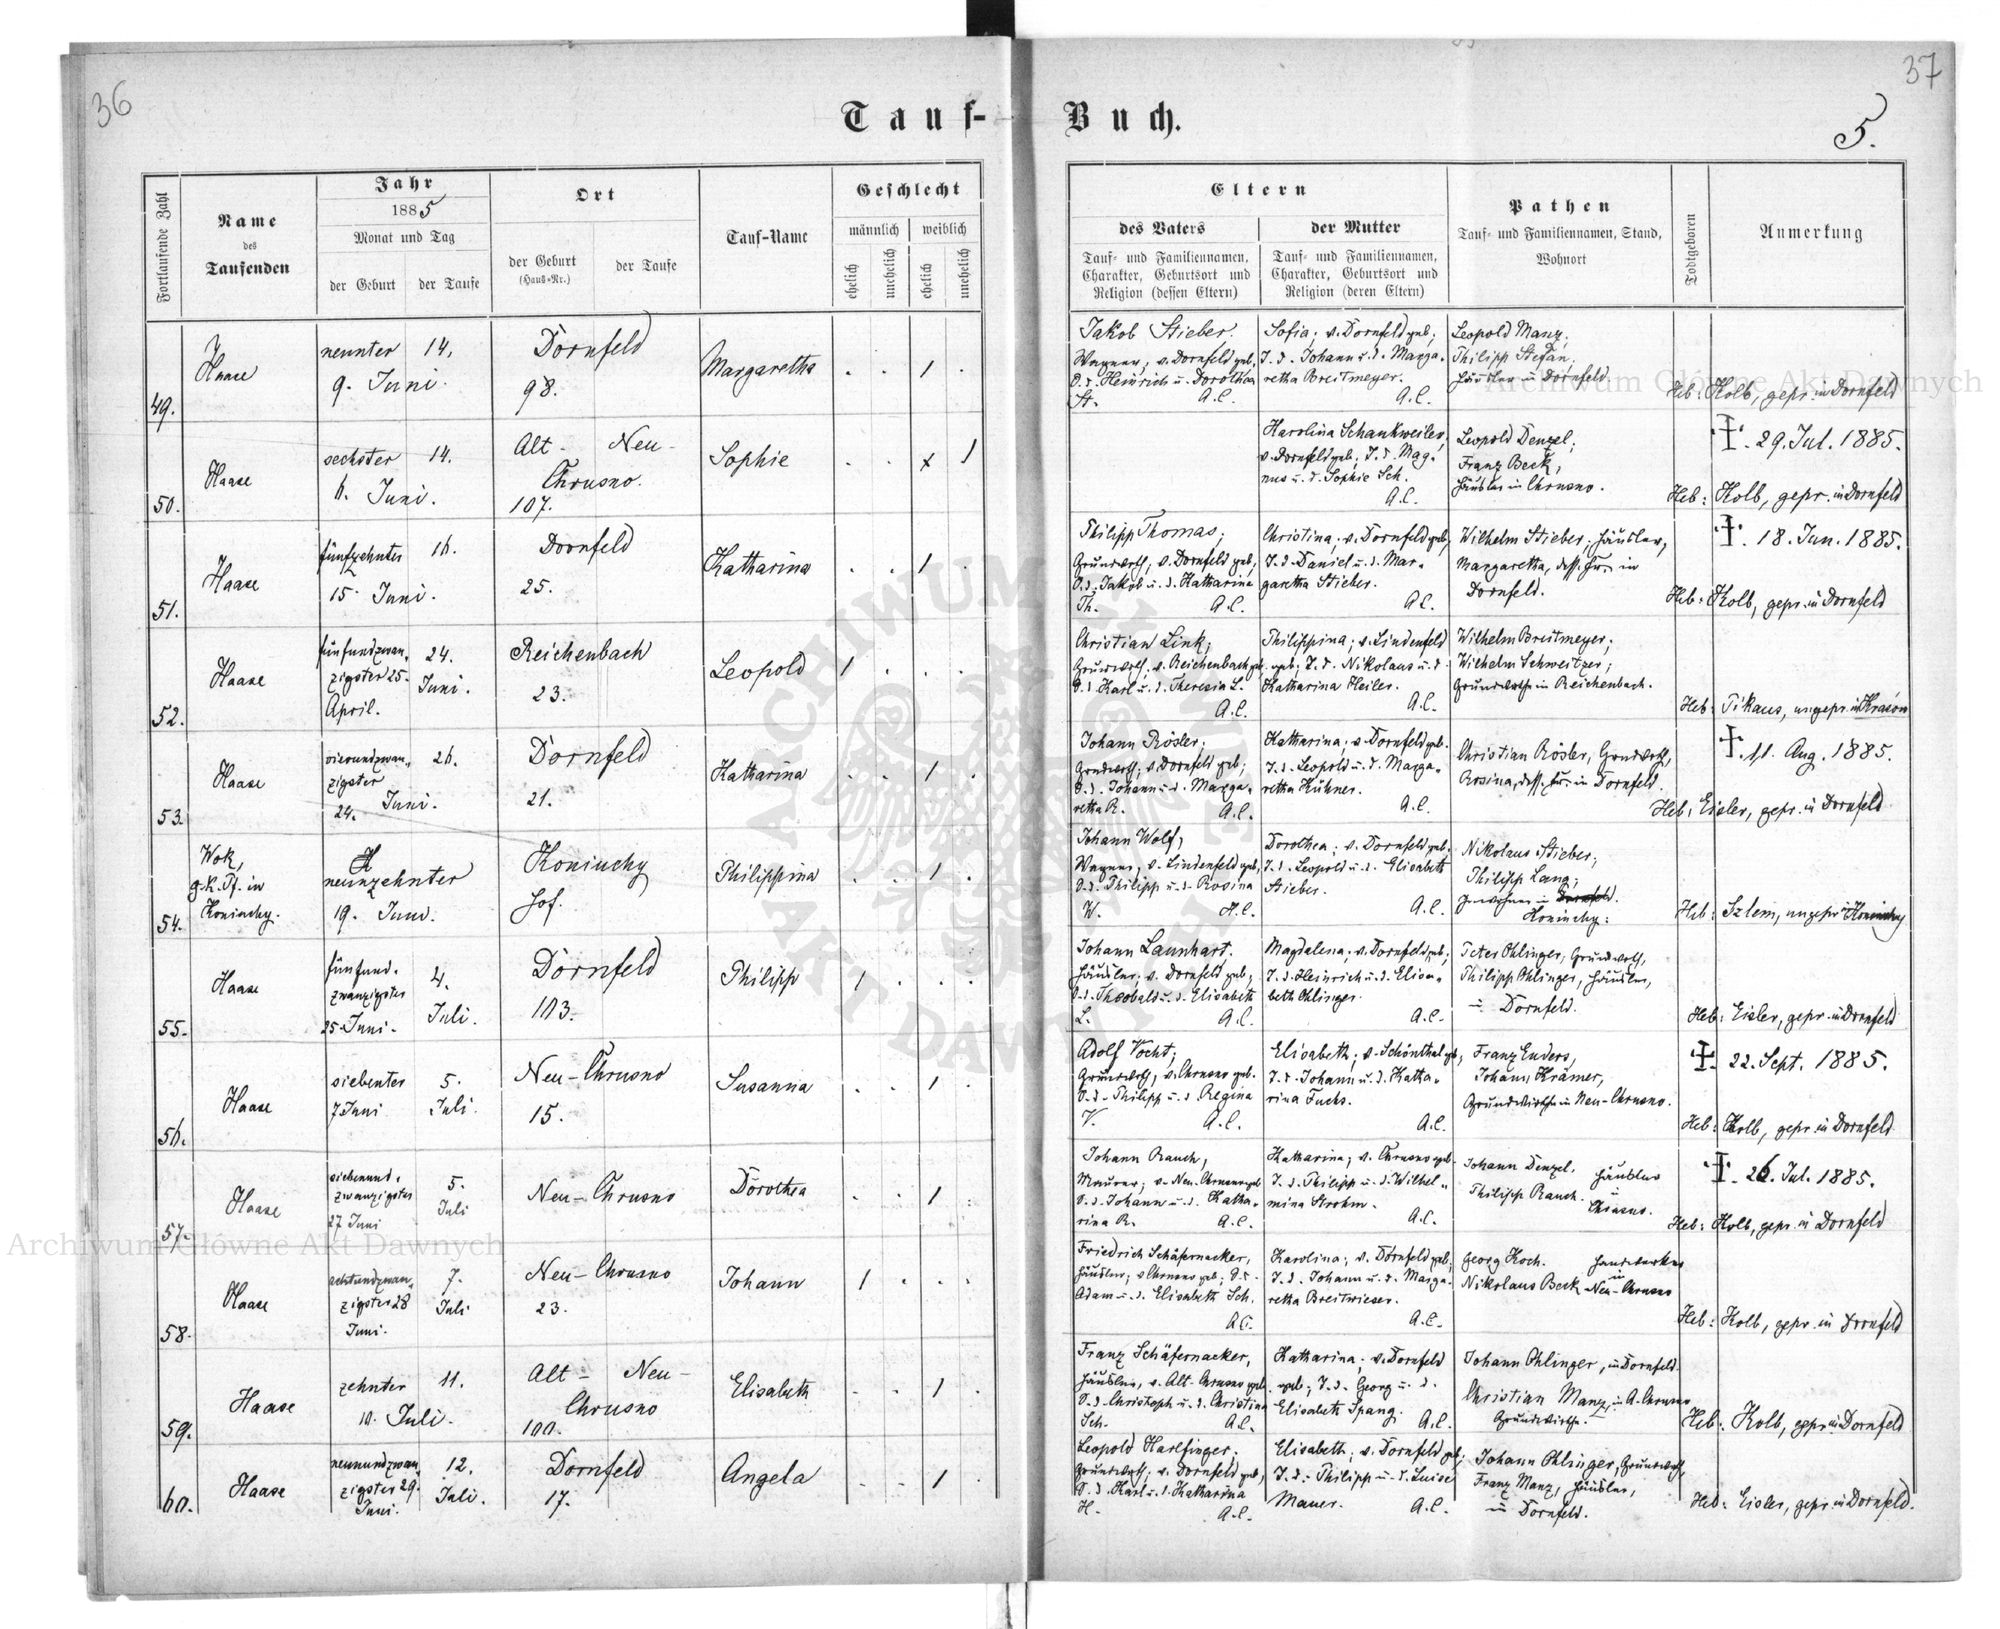 36
37
Tauf-Buch.
5.
Fortlaufende Zahl
Name
des
Taufenden
Jahr
1885
Monat und Tag
der Geburt
der Taufe
Ort
der Geburt
(Haus-Nr.)
der Taufe
Tauf-Name
Geschlecht
männlich
weiblich
ehelich
unehelich
ehelich
unehelich
Eltern
des Vaters
Tauf- und Familiennamen,
Charakter, Geburtsort und
Religion (dessen Eltern)
der Mutter
Tauf- und Familiennamen,
Charakter, Geburtsort und
Religion (deren Eltern)
Pathen
Tauf- und Familiennamen, Stand,
Wohnort
Todtgeboren
Anmerkung
49.
Haase
neunter
9. Juni.
14.
Dornfeld
98.
Margaretha
1
Jakob Stieber,
Wagner, v. Dornfeld geb.
S. d. Heinrich u. d. Dorothea
St. A.C.
Sofia; v. Dornfeld geb;
T. d. Johann u. d. Marga-
retha Breitmeyer.
A.C.
Leopold Manz,
Philipp Stefan,
Häusler in Dornfeld
Heb: Kolb, gepr. in Dornfeld
50.
Haase
sechster
6. Juni.
14.
Alt- Neu-
Chrusno.
107.
Sophie
x 1
Karolina Schankweiler,
v. Dornfeld geb, T. d. Mag-
nus u. d. Sophie Sch.
A.C.
Leopold Denzel,
Franz Beck,
Häusler in Chrusno.
†. 29. Jul. 1885.
Heb: Kolb, gepr. in Dornfeld
51.
Haase
fünfzehnter
15. Juni.
16.
Dornfeld
25.
Katharina
1
Philipp Thomas;
Grundwrth, v. Dornfeld geb,
S. d. Jakob u. d. Katharina
Th. A.C.
Christina; v. Dornfeld geb,
T. d. Daniel u. d. Mar-
garetha Stieber.
A.C.
Wilhelm Stieber, Häusler,
Margaretha, dess. Fr. in
Dornfeld.
†. 18. Jun. 1885.
Heb: Kolb, gepr. in Dornfeld
52.
Haase
fünfundzwan-
zigster 25.
April.
24.
Juni.
Reichenbach
23.
Leopold
1
Christian Link;
Grundwrth; v. Reichenbach geb.
S. d. Karl u. d. Theresia L.
A.C.
Philippina; v. Lindenfeld
geb; T. d. Nikolaus u. d.
Katharina Heiler.
A.C.
Wilhelm Breitmeyer;
Wilhelm Schweitzer;
Grundwrthe in Reichenbach.
Heb: Pikaus, ungepr. in Krasów
53.
Haase
vierundzwan-
zigster
24. Juni.
26.
Dornfeld
21.
Katharina
1
Johann Rösler;
Grundwrth; v. Dornfeld geb;
S. d. Johann u. d. Marga-
retha R. A.C.
Katharina; v. Dornfeld geb.
T. d. Leopold u. d. Marga-
retha Kühner.
A.C.
Christian Rösler, Grundwrth,
Rosina, dess. Fr. in Dornfeld.
†. 11. Aug. 1885.
Heb: Eisler, gepr. in Dornfeld
54.
Wok,
g.k. Pf. in
Koniuchy.
neunzehnter
19. Juni.
Koniuchy
Hof.
Philippina
1
Johann Wolf,
Wagner; v. Lindenfeld geb,
S. d. Philipp u. d. Rosina
W. A.C.
Dorothea; v. Dornfeld geb.
T. d. Leopold u. d. Elisabeth
Stieber.
A.C.
Nikolaus Stieber;
Philipp Lang;
in Dornfeld.
Koniuchy.
Heb: Szlem, ungepr. in Koniuchy
55.
Haase
fünfund-
zwanzigster
25. Juni.
4.
Juli.
Dornfeld
103.
Philipp
1
Johann Launhart.
Häusler; v. Dornfeld geb;
S. d. Theobald u. d. Elisabeth
L. A.C.
Magdalena; v. Dornfeld geb;
T. d. Heinrich u. d. Elisa-
beth Ohlinger.
A.C.
Peter Ohlinger, Grundwrth,
Philipp Ohlinger, Häusler,
in Dornfeld.
Heb: Eisler, gepr. in Dornfeld
56.
Haase
siebenter
7 Juni
5.
Juli.
Neu-Chrusno
15.
Susanna
1
Adolf Vocht;
Grundwrth, v. Chrusno geb.
S. d. Philipp u. d. Regina
V. A.C.
Elisabeth; v. Schönthal geb,
T. d. Johann u. d. Katha-
rina Fuchs.
A.C.
Franz Enders,
Johann Krämer,
Grundwirthe in Neu-Chrusno.
†. 22. Sept. 1885.
Heb: Kolb, gepr. in Dornfeld
57.
Haase
siebenund-
zwanzigster
27 Juni
5.
Juli
Neu-Chrusno
Dorothea
1
Johann Rauch,
Maurer; v. Neu-Chrusno geb
S. d. Johann u. d. Katha-
rina R. A.C.
Katharina; v. Chrusno geb.
T. d. Philipp u. d. Wilhel-
mina Strohm.
A.C.
Johann Denzel.
Philipp Rauch.
Häusler
Chrusno.
†. 26. Jul. 1885.
Heb: Kolb, gepr. in Dornfeld
58.
Haase
achtundzwan-
zigster 28
Juni.
7.
Juli
Neu-Chrusno
23.
Johann
1
Friedrich Schäfernacker,
Häusler; v Chrusno geb; S. d.
Adam u. d. Elisabeth Sch.
A.C.
Karolina; v. Dornfeld geb;
T. d. Johann u. d. Marga-
retha Breitwieser.
A.C.
Georg Koch.
Nikolaus Beck
Handwerker
in
Neu-Chrusno
Heb: Kolb, gepr. in Dornfeld
59.
Haase
zehnter
10. Juli.
11.
Alt- Neu-
Chrusno
100.
Elisabeth
1
Franz Schäfernacker,
Häusler, v. Alt-Chrusno geb.
S. d. Christoph u. d. Christina
Sch. A.C.
Katharina; v. Dornfeld
geb; T. d. Georg u. d.
Elisabeth Spang.
A.C.
Johann Ohlinger, in Dornfeld.
Christian Manz, in A. Chrusno
Grundwirthe.
Heb: Kolb, gepr. in Dornfeld
60.
Haase
neunundzwan-
zigster 29.
Juni.
12.
Juli.
Dornfeld
17.
Angela
1
Leopold Harlfinger.
Grundwrth; v. Dornfeld geb,
S. d. Karl u. d. Katharina
H. A.C.
Elisabeth; v. Dornfeld geb;
T. d. Philipp u. d. Luise
Mauer. A.C.
Johann Ohlinger, Grundwrth,
Franz Manz, Häusler,
in Dornfeld.
Heb: Eisler, gepr. in Dornfeld.
Archiwum Główne Akt Dawnych
Archiwum Główne Akt Dawnych
ARCHIWUM GŁÓWNE AKT DAWNYCH